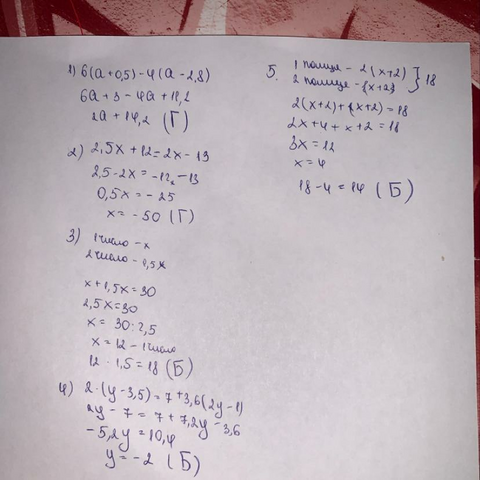 1) 6(a+0,5)-4(a-2,8)
6a+3-4a+11,2
2a+14,2 (Г)
2) 2,5x+12=2x-13
2,5-2x=-12-13
0,5x=-25
x=-50 (Г)
3) 1 число - x
2 число - 1,5x
x+1,5x=30
2,5x=30
x=30:2,5
x=12-1 число
12·1,5=18 (Б)
4) 2·(y-3,5)=7+3,6(2y-1)
2y-7=7+7,2y-3,6
-5,2y=10,4
y=-2 (Б)
5. 1 полиця - 2(x+2)
2 полиця - (x+2) } 18
2(x+2)+(x+2)=18
2x+4+x+2=18
3x=12
x=4
18-4=14 (Б)